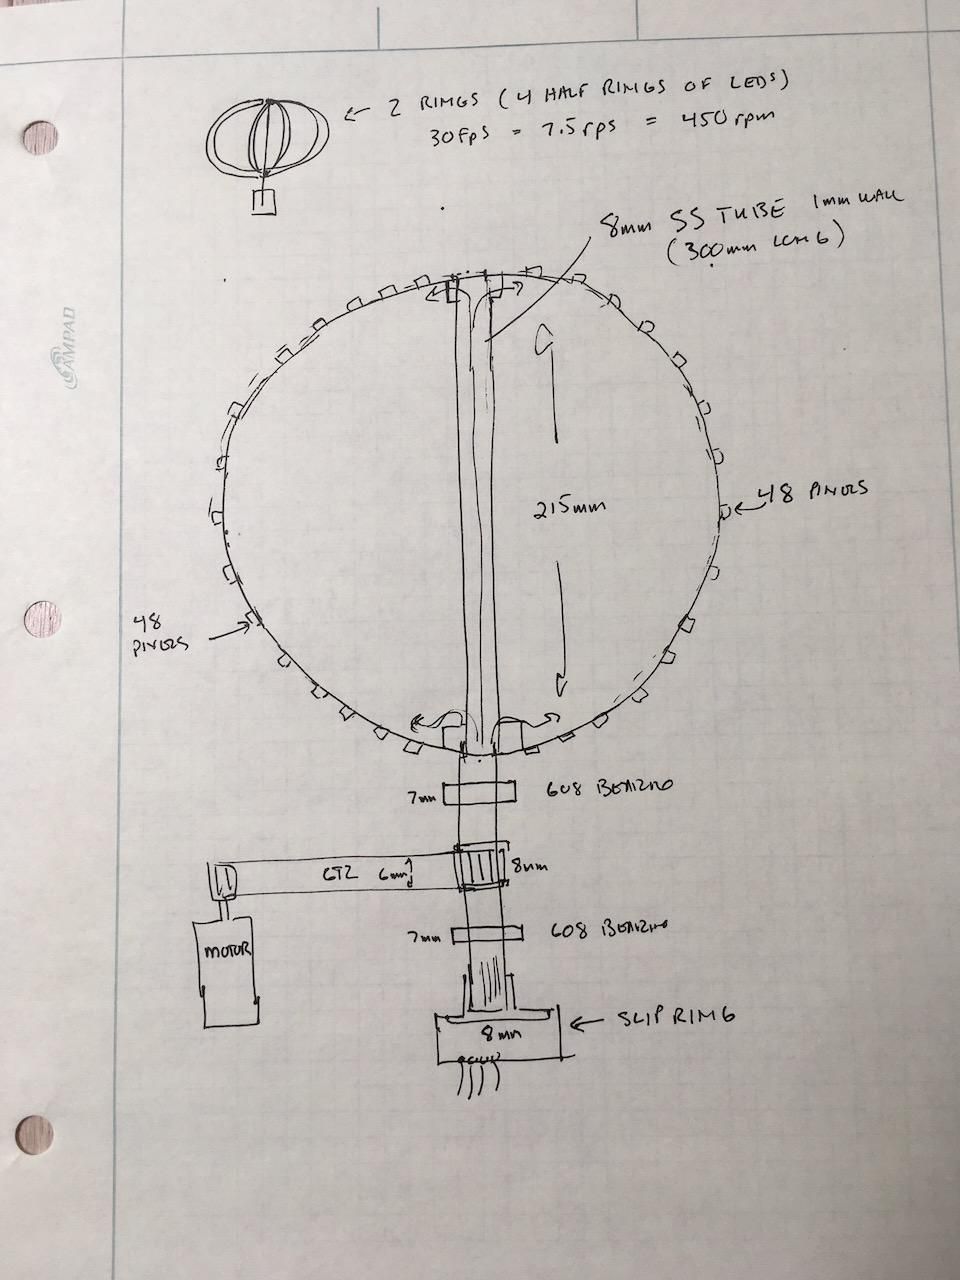 ← 2 RINGS (4 HALF RINGS OF LEDS)
30FPS = 7.5rps = 450rpm
8mm SS TUBE 1mm WALL
(300mm LONG)
AMPAD
215mm
48 PIXELS
48
PIXELS
7mm
608 BEARING
GT2 6mm
8mm
MOTOR
7mm
608 BEARING
8mm
← SLIP RING